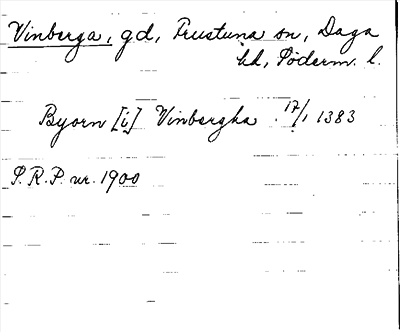 Vinberga, gd, Frustuna sn, Daga
hd, Söderm. l.
Byorn [i] Vinbergha . 17/1 1383
S.R.P. nr. 1900